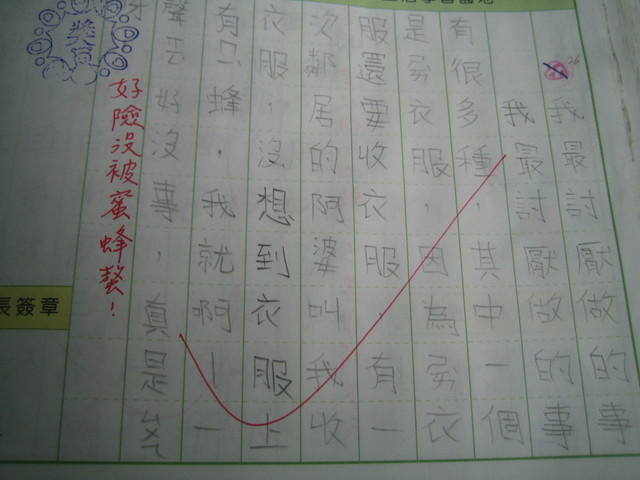 我最討厭做的事
我最討厭做的事
有很多種，其中一個
是衣服，因為衣
服還要收衣服。有一
次鄰居的阿婆叫我收
衣服，沒想到衣服上
有只蜂，我就啊｜一
聲云好沒事，真是
好險沒被蜜蜂螫！
長簽章